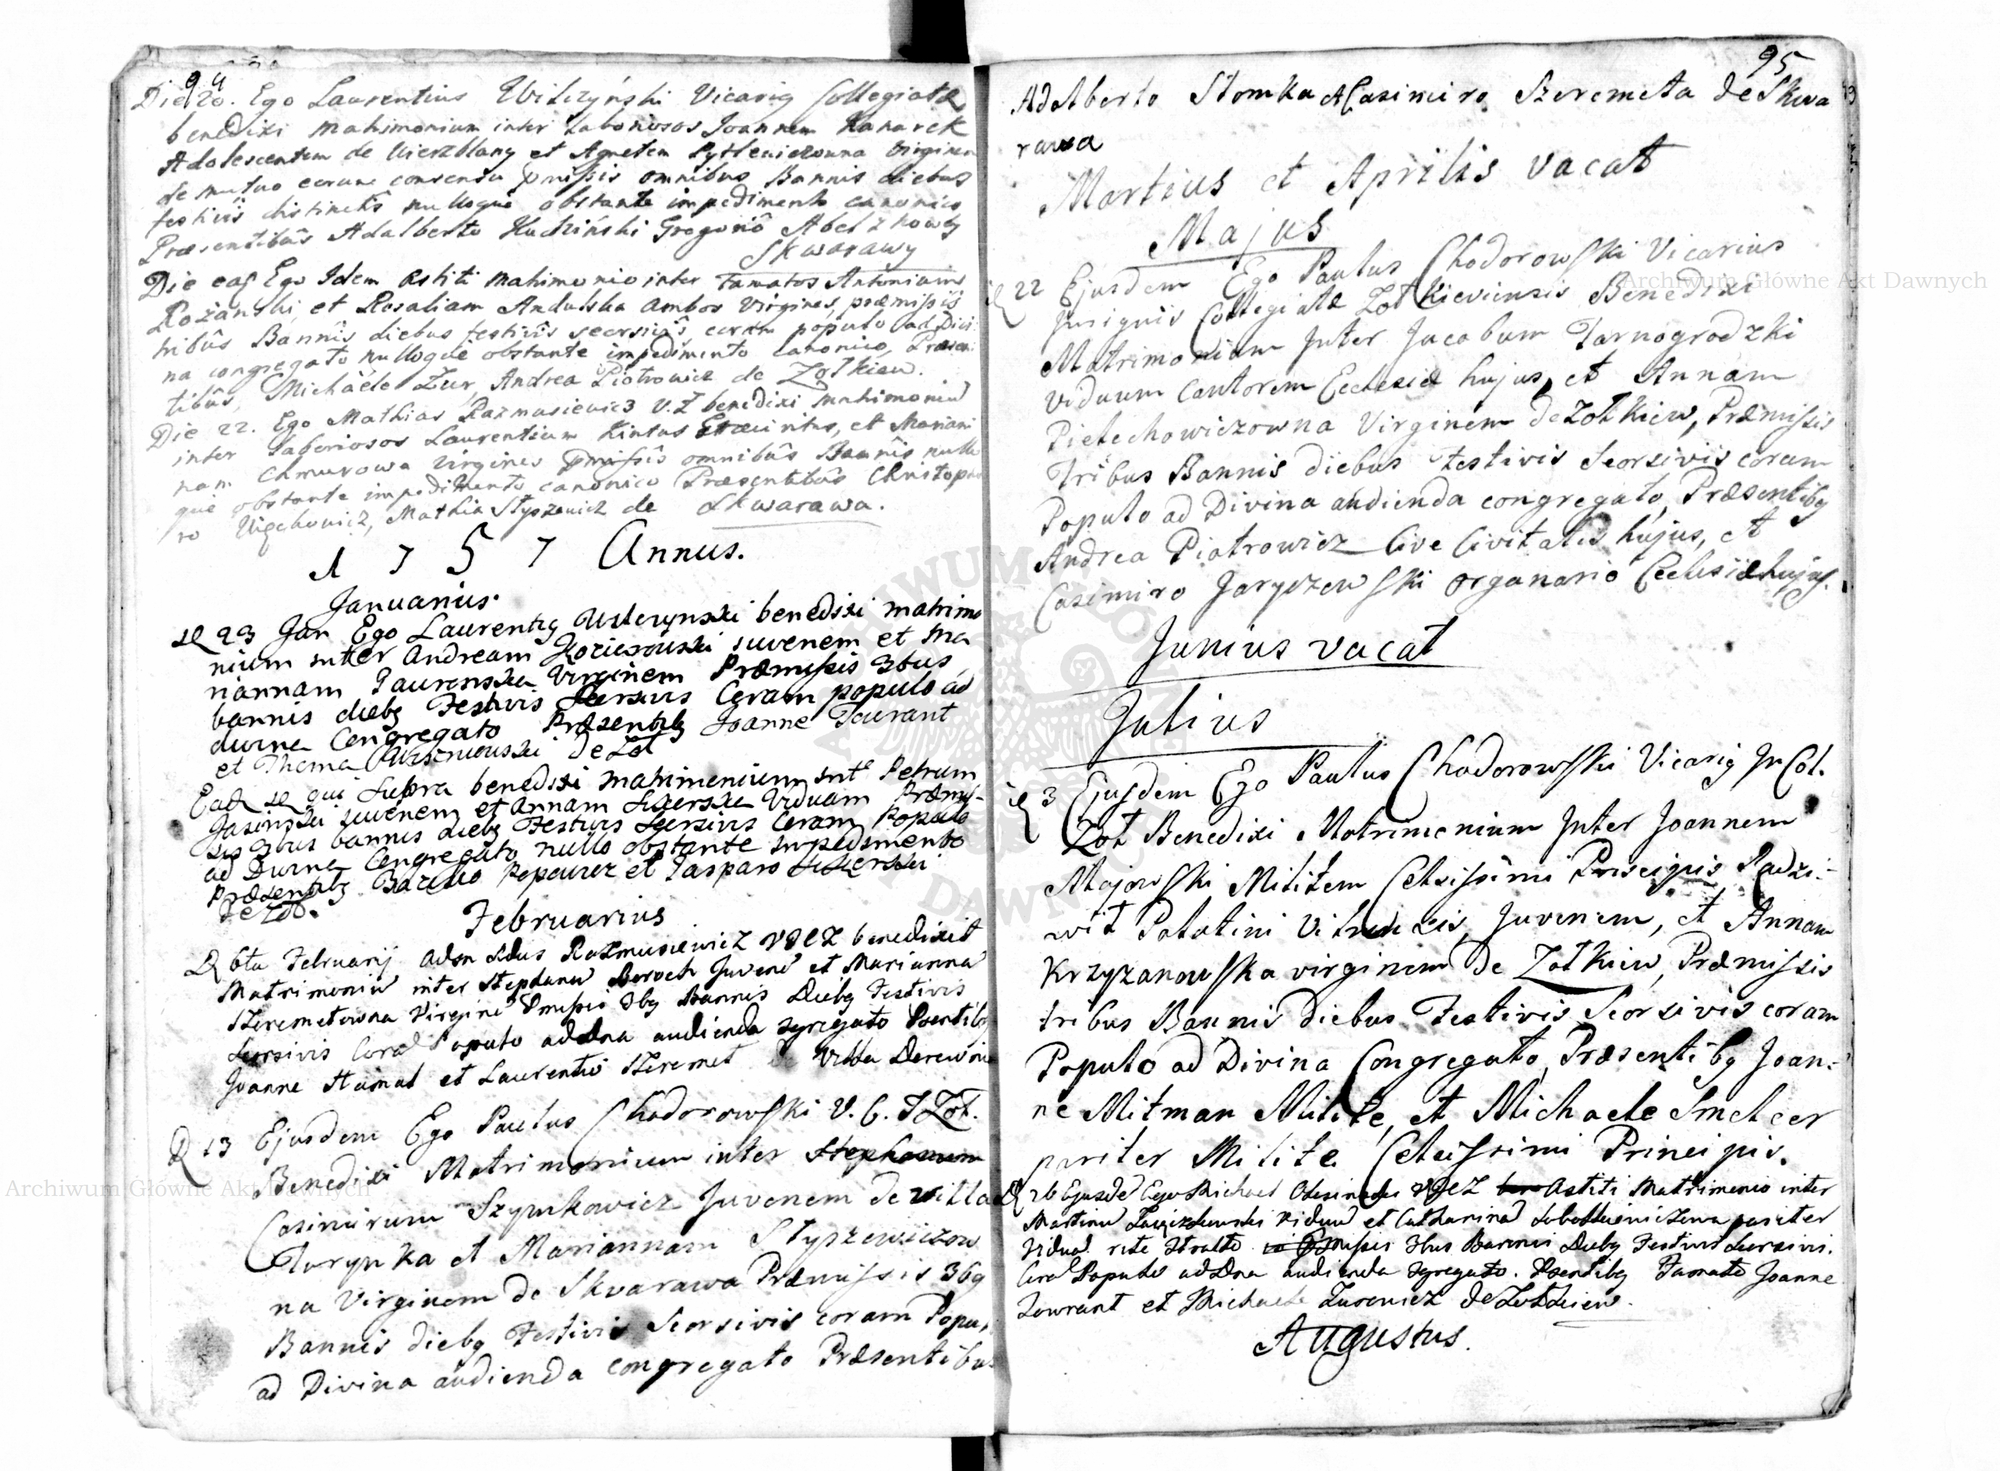 94
Die 20. Ego Laurentius Wilczyński Vicarig Collegiatæ
benedixi matrimonium inter Laboriosos Joannem Kanarek
Adolescentem de Wierzblany et Agnetem Pytlewiczowna Virginem
de mutuo eorum consensu pmissis omnibus Bannis diebus
festivis distinctis nulloque obstante impedimento canonico
Præsentibus Adalberto Kuchiński Gregorio Abel z
Skwarawy
Die ead Ego Idem astiti matrimonio inter famatos Antonium
Rożanski, et Rosaliam Andulska ambos Virgines, præmissis
tribûs Bannis diebus festivis seorsivis coram populo ad Divi
na congregato nulloque obstante impedimento canonico, Præsen
tibûs, Michaële Zur, Andrea Piotrowicz de Zołkiew.
Die 22. Ego Mathias Razmusiewicz V.Z benedixi matrimoniu
inter Laboriosos Laurentium Kintus, et Marian
nam Chmurowa virgines pmissis omnibûs Bannis nullo
que obstante impedimento canonico Præsentibûs Christopho
ro Mathia Styszewicz de Skwarawa.
1757 Annus.
Januarius.
23 Jan Ego Laurentg Wilczynski benedixi matrimo
nium inter Andream juvenem et Ma
riannam Virginem Præmissis 3bus
bannis diebg Festivis Seorsivis Coram populo ad
divina Congregato Præsentibg Joanne Taurant
et Thoma de Zoł
Ead qui supra benedixi matrimonium int Petrum
Jasinski juvenem et Annam Viduam Præmis-
sis 3bus bannis diebg Festivis Seorsivis Coram Populo
ad Divina Congregato nullo obstante impedimento
Præsentibg et Gasparo
de Zoł.
Februarius
6ta Februarij Adm Rdus Razmusiewicz VZ benedixit
Matrimoniu inter Stephanu Boroch Juvene et Marianna
Szeremetowna Virgine Pmissis 3bg Bannis Diebg Festivis
Seorsivis Cora Populo ad Dna audienda Psentibg
Joanne Hamal et Laurentio Szeremet de Villa Derewnia
D 13 Ejusdem Ego Paulus Chodorowski V. C. I Zoł.
Benedixi Matrimonium inter Stephanum
Casimirum Szpurkowicz Juvenem de villa
Turynka et Mariannam Styszewiczow
na Virginem de Skvarawa Præmissis 3bg
Bannis diebg Festivis Seorsivis coram Popu,
ad Divina audienda congregato Præsentibus
95
Adalberto Słomka et Casimiro Szeremeta de Skwa
rawa
Martius et Aprilis vacat
Majus
22 Ejusdem Ego Paulus Chodorowski Vicarius
Insignis Collegiatæ Zołkieviensis Benedixi
Matrimonium Inter Jacobum Tarnogrodzki
viduum cantorem Ecclesiæ hujus, et Annam
Pielechowiczowna Virginem de Zołkiew, Præmissis
Tribus Bannis diebus Festivis Seorsivis coram
Populo ad Divina audienda congregato, Præsentibg
Andrea Piotrowicz Cive Civitatis hujus, et
Casimiro Jaryczewski organario Ecclesiæ hujus.
Junius vacat
Julius
3 Ejusdem Ego Paulus Chodorowski Vicarig In Col.
Zoł Benedixi Matrimonium Inter Joannem
Majowski Militem Celsissimi Principis Radzi-
wił Palatini Vilnensis, Juvenem, et Annam
Krzyzanowska virginem de Zołkiew, Præmissis
tribus Bannis diebus Festivis Seorsivis coram
Populo ad Divina Congregato, Præsentibg Joan-
ne Mitman Milite, et Michaele Smelcer
pariter Milite Celsissimi Principis.
26 Ejusde Ego Michael VZ Astiti Matrimonio inter
Martinu Viduu et Catharina pariter
Vidua rite Pmissis 3bus Bannis Diebg Festivis Seorsivis.
Cora Populo ad Dna audienda. Psentibg Famato Joanne
Towrant et Michaele Zurowicz de Zołkiew.
Augustus.
Archiwum Główne Akt Dawnych
Archiwum Główne Akt Dawnych
ARCHIWUM GŁÓWNE AKT DAWNYCH